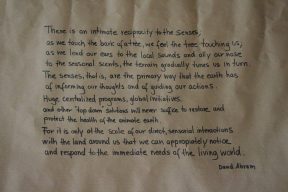 There is an intimate reciprocity to the senses;
as we touch the bark of a tree, we feel the tree touching us;
as we lend our ears to the local sounds and ally our nose
to the seasonal scents, the terrain gradually tunes us in turn.
The senses, that is, are the primary way that the earth has
of informing our thoughts and of guiding our actions.
Huge centralized programs, global initiatives,
and other 'top down' solutions will never suffice to restore and
protect the health of the animate earth.
For it is only at the scale of our direct, sensorial interactions
with the land around us that we can appropriately notice
and respond to the immediate needs of the living world.
David Abram